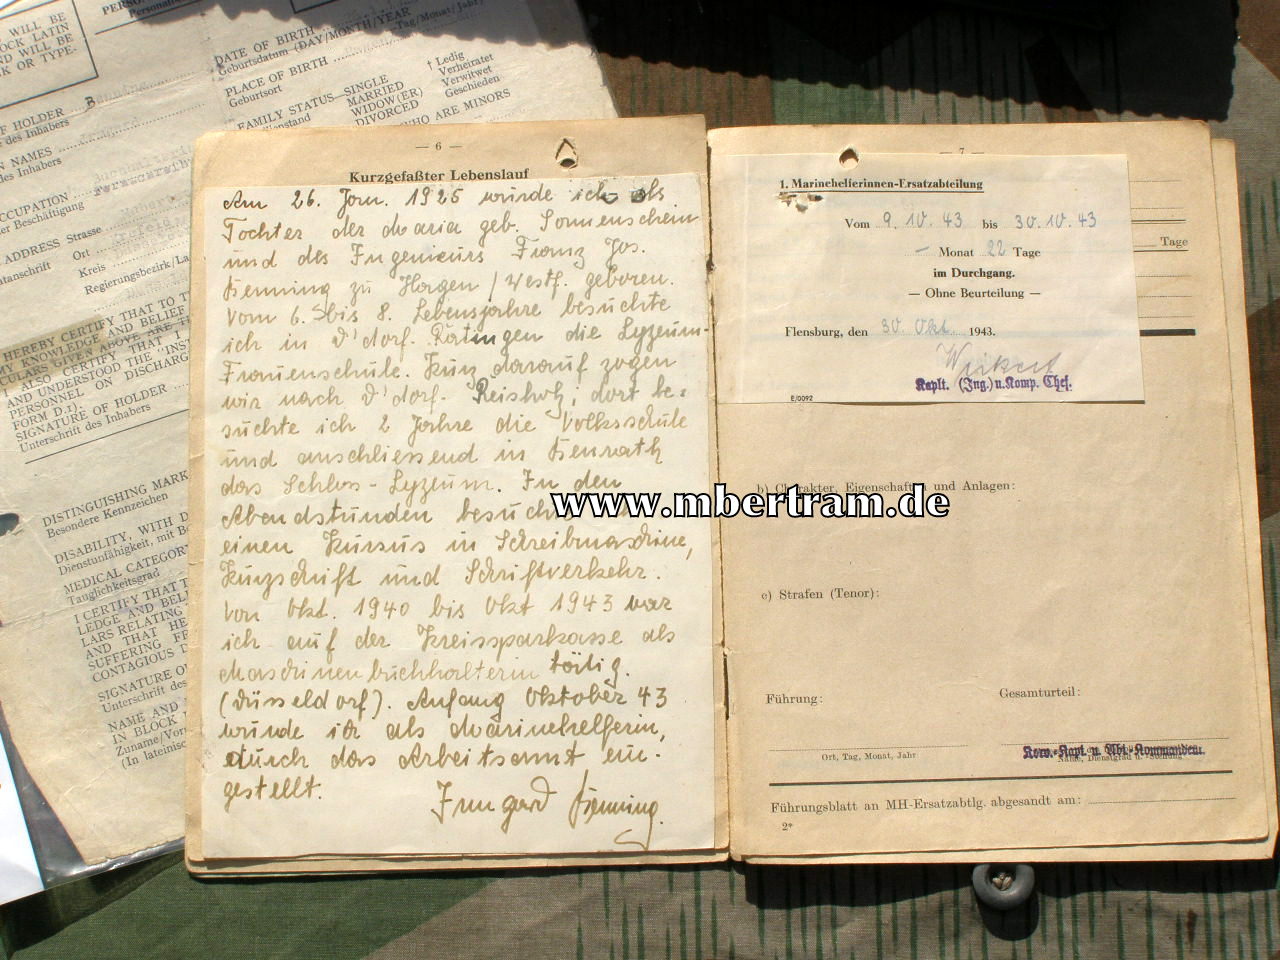 WILL BE
BLOCK LATIN
AND WILL BE
INK OR TYPE.
DATE OF BIRTH
Geburtsdatum (DAY/MONTH/YEAR
Tag/Monat/Jahr)
PLACE OF BIRTH
Geburtsort
FAMILY STATUS—SINGLE
MARRIED
WIDOW(ER)
DIVORCED
† Ledig
Verheiratet
Verwitwet
Geschieden
WHO ARE MINORS
OF HOLDER
des Inhabers
NAMES
des Inhabers
OCCUPATION
oder Beschäftigung
ADDRESS Strasse
Ort
Kreis
Regierungsbezirk/La
HEREBY CERTIFY THAT TO T
MY KNOWLEDGE AND BELIEF
CULARS GIVEN ABOVE ARE T
I ALSO CERTIFY THAT I
AND UNDERSTOOD THE "INS
PERSONNEL ON DISCHARG
FORM D.1).
SIGNATURE OF HOLDER
Unterschrift des Inhabers
DISTINGUISHING MARK
Besondere Kennzeichen
DISABILITY, WITH D
Dienstunfähigkeit, mit Be
MEDICAL CATEGORY
Tauglichkeitsgrad
I CERTIFY THAT T
LEDGE AND BEL
LARS RELATING
AND THAT HE
SUFFERING FR
CONTAGIOUS D
SIGNATURE O
Unterschrift des
NAME AND
IN BLOCK
Zuname/Vor
(In lateinisc
— 6 —
Kurzgefaßter Lebenslauf
Am 26. Jan. 1925 wurde ich als
Tochter der Maria geb. Sonnenschein
und des Ingenieurs Franz Jos.
Henning zu Hagen / Westf. geboren.
Vom 6. bis 8. Lebensjahre besuchte
ich in D'dorf. Ratingen die Lyzeum-
Frauenschule. Kurz darauf zogen
wir nach D'dorf. Reisholz; dort be-
suchte ich 2 Jahre die Volksschule
und anschliessend in Benrath
das Schlos-Lyzeum. In den
Abendstunden
einen Kursus in Schreibmaschine,
Kurzschrift und Schriftverkehr.
Von Okt. 1940 bis Okt 1943 war
ich auf der Kreissparkasse als
Maschinenbuchhalterin tätig.
(Düsseldorf). Anfang Oktober 43
wurde ich als Marinehelferin,
durch das Arbeitsamt ein-
gestellt.
Irmgard Henning.
— 7 —
1. Marinehelferinnen-Ersatzabteilung
Vom 9. 10. 43 bis 30. 10. 43
— Monat 22 Tage
im Durchgang.
— Ohne Beurteilung —
Flensburg, den 30. Okt. 1943.
Kaplt. (Ing.) u. Komp. Chef.
E/0092
Tage
www.mbertram.de
b) Charakter, Eigenschaften und Anlagen:
c) Strafen (Tenor):
Führung:
Gesamturteil:
Ort, Tag, Monat, Jahr
Korv.-Kapt. u. Abt.-Kommandeur.
Name, Dienstgrad u. -Stellung
Führungsblatt an MH-Ersatzabtlg. abgesandt am:
2*